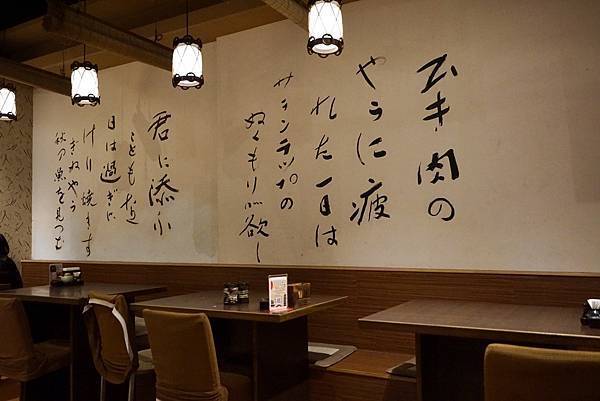 ひき肉の
やうに疲
れた一日は
サランラップの
ぬくもりが欲し
君に添ふ
こともなく
日は過ぎに
けり焼きす
ぎぬやう
秋の魚を見つむ